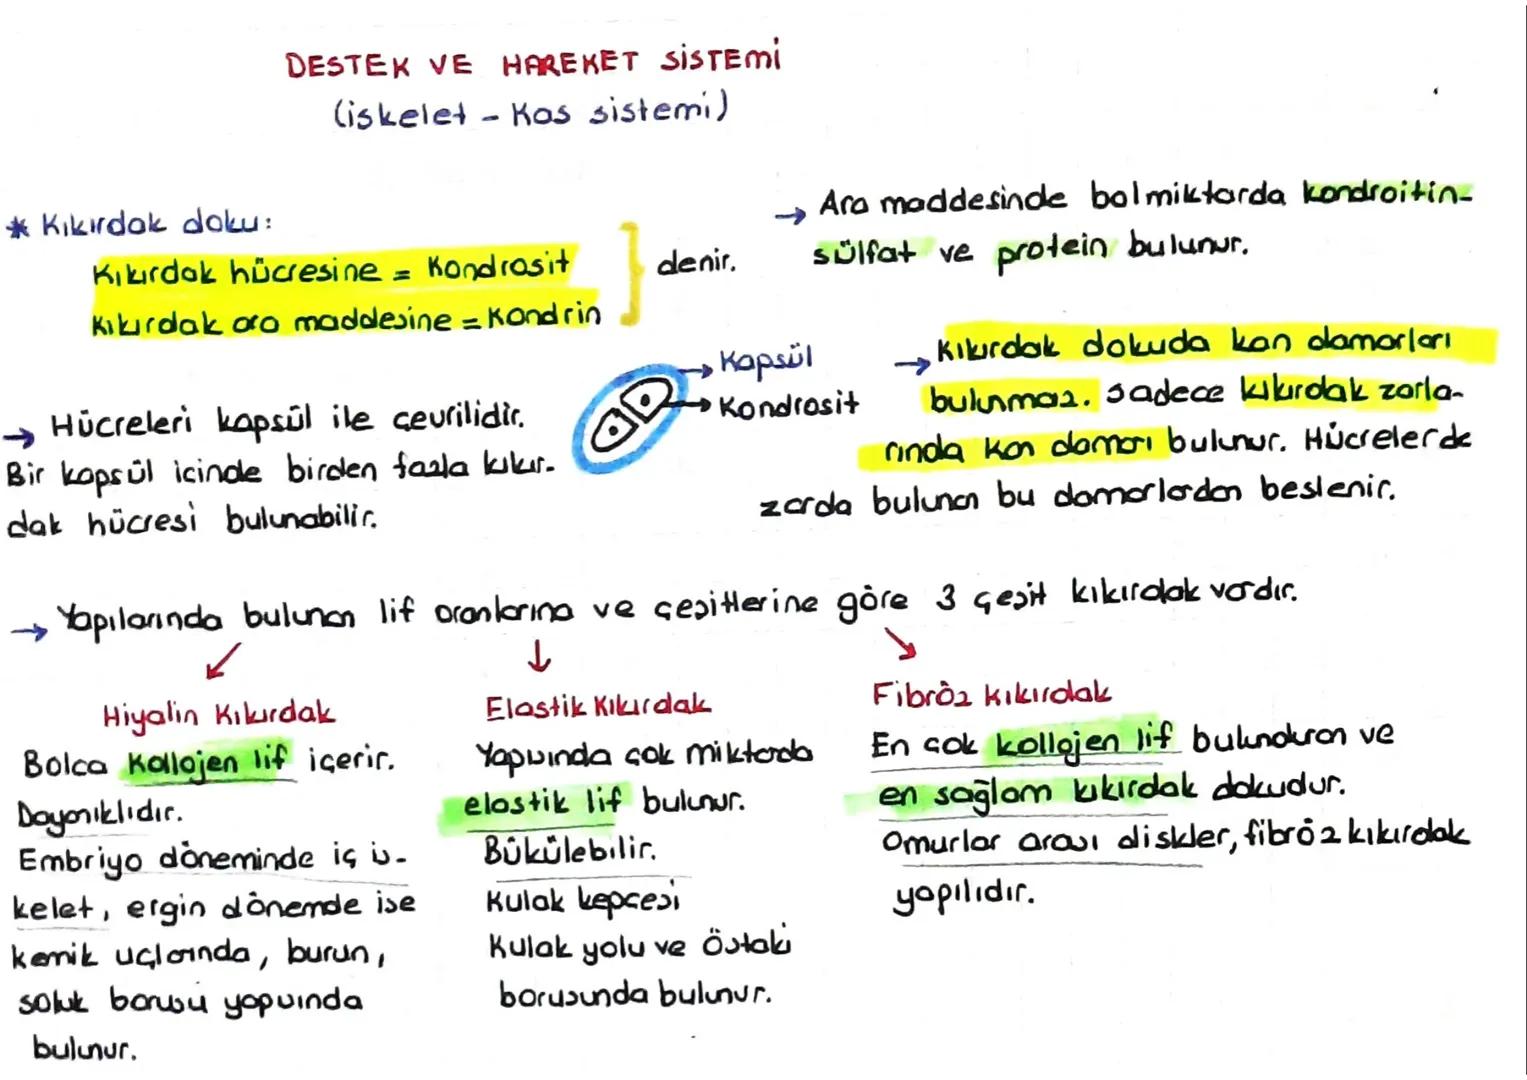 DESTEK VE HAREKET SİSTEMİ
(iskelet - Kas sistemi)
* Kıkırdak doku:
Kıkırdak hücresine = Kondrosit
Kıkırdak ara maddesine = Kondrin
denir.
→ Hücreleri kapsül ile çevrilidir.
Bir kapsül içinde birden fazla kıkır-
dak hücresi bulunabilir.
→ Kapsül
→ Kondrosit
→ Ara maddesinde bol miktarda kondroitin-
sülfat ve protein bulunur.
→ Kıkırdak dokuda kan damarları
bulunmaz. Sadece kıkırdak zarla-
rında kan damarı bulunur. Hücrelerde
zarda bulunan bu damarlardan beslenir.
→ Yapılarında bulunan lif oranlarına ve çeşitlerine göre 3 çeşit kıkırdak vardır.
Hiyalin Kıkırdak
Bolca Kollojen lif içerir.
Dayanıklıdır.
Embriyo döneminde iç is-
kelet, ergin dönemde ise
kemik uçlarında, burun,
soluk borusu yapısında
bulunur.
Elastik Kıkırdak
Yapısında çok miktarda
elastik lif bulunur.
Bükülebilir.
Kulak kepçesi
Kulak yolu ve Östaki
borusunda bulunur.
Fibröz kıkırdak
En çok kollojen lif bulunduran ve
en sağlam kıkırdak dokudur.
Omurlar arası diskler, fibröz kıkırdak
yapılıdır.